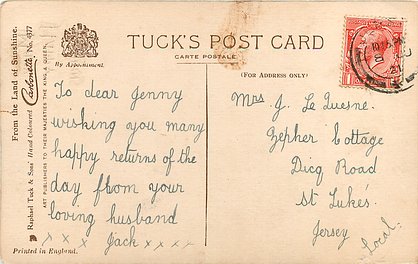 TUCK'S POST CARD
CARTE POSTALE
By Appointment.
(FOR ADDRESS ONLY)
From the Land of Sunshine.
Carbonette No. 4377
Raphael Tuck & Sons' Hand Coloured
ART PUBLISHERS TO THEIR MAJESTIES THE KING & QUEEN.
Printed in England.
To dear Jenny
wishing you many
happy returns of the
day from your
loving husband
x x x Jack x x x x
Mrs J. Le Quesne.
Zepher Cottage
Dicq Road
St Luke's.
Jersey
Local.